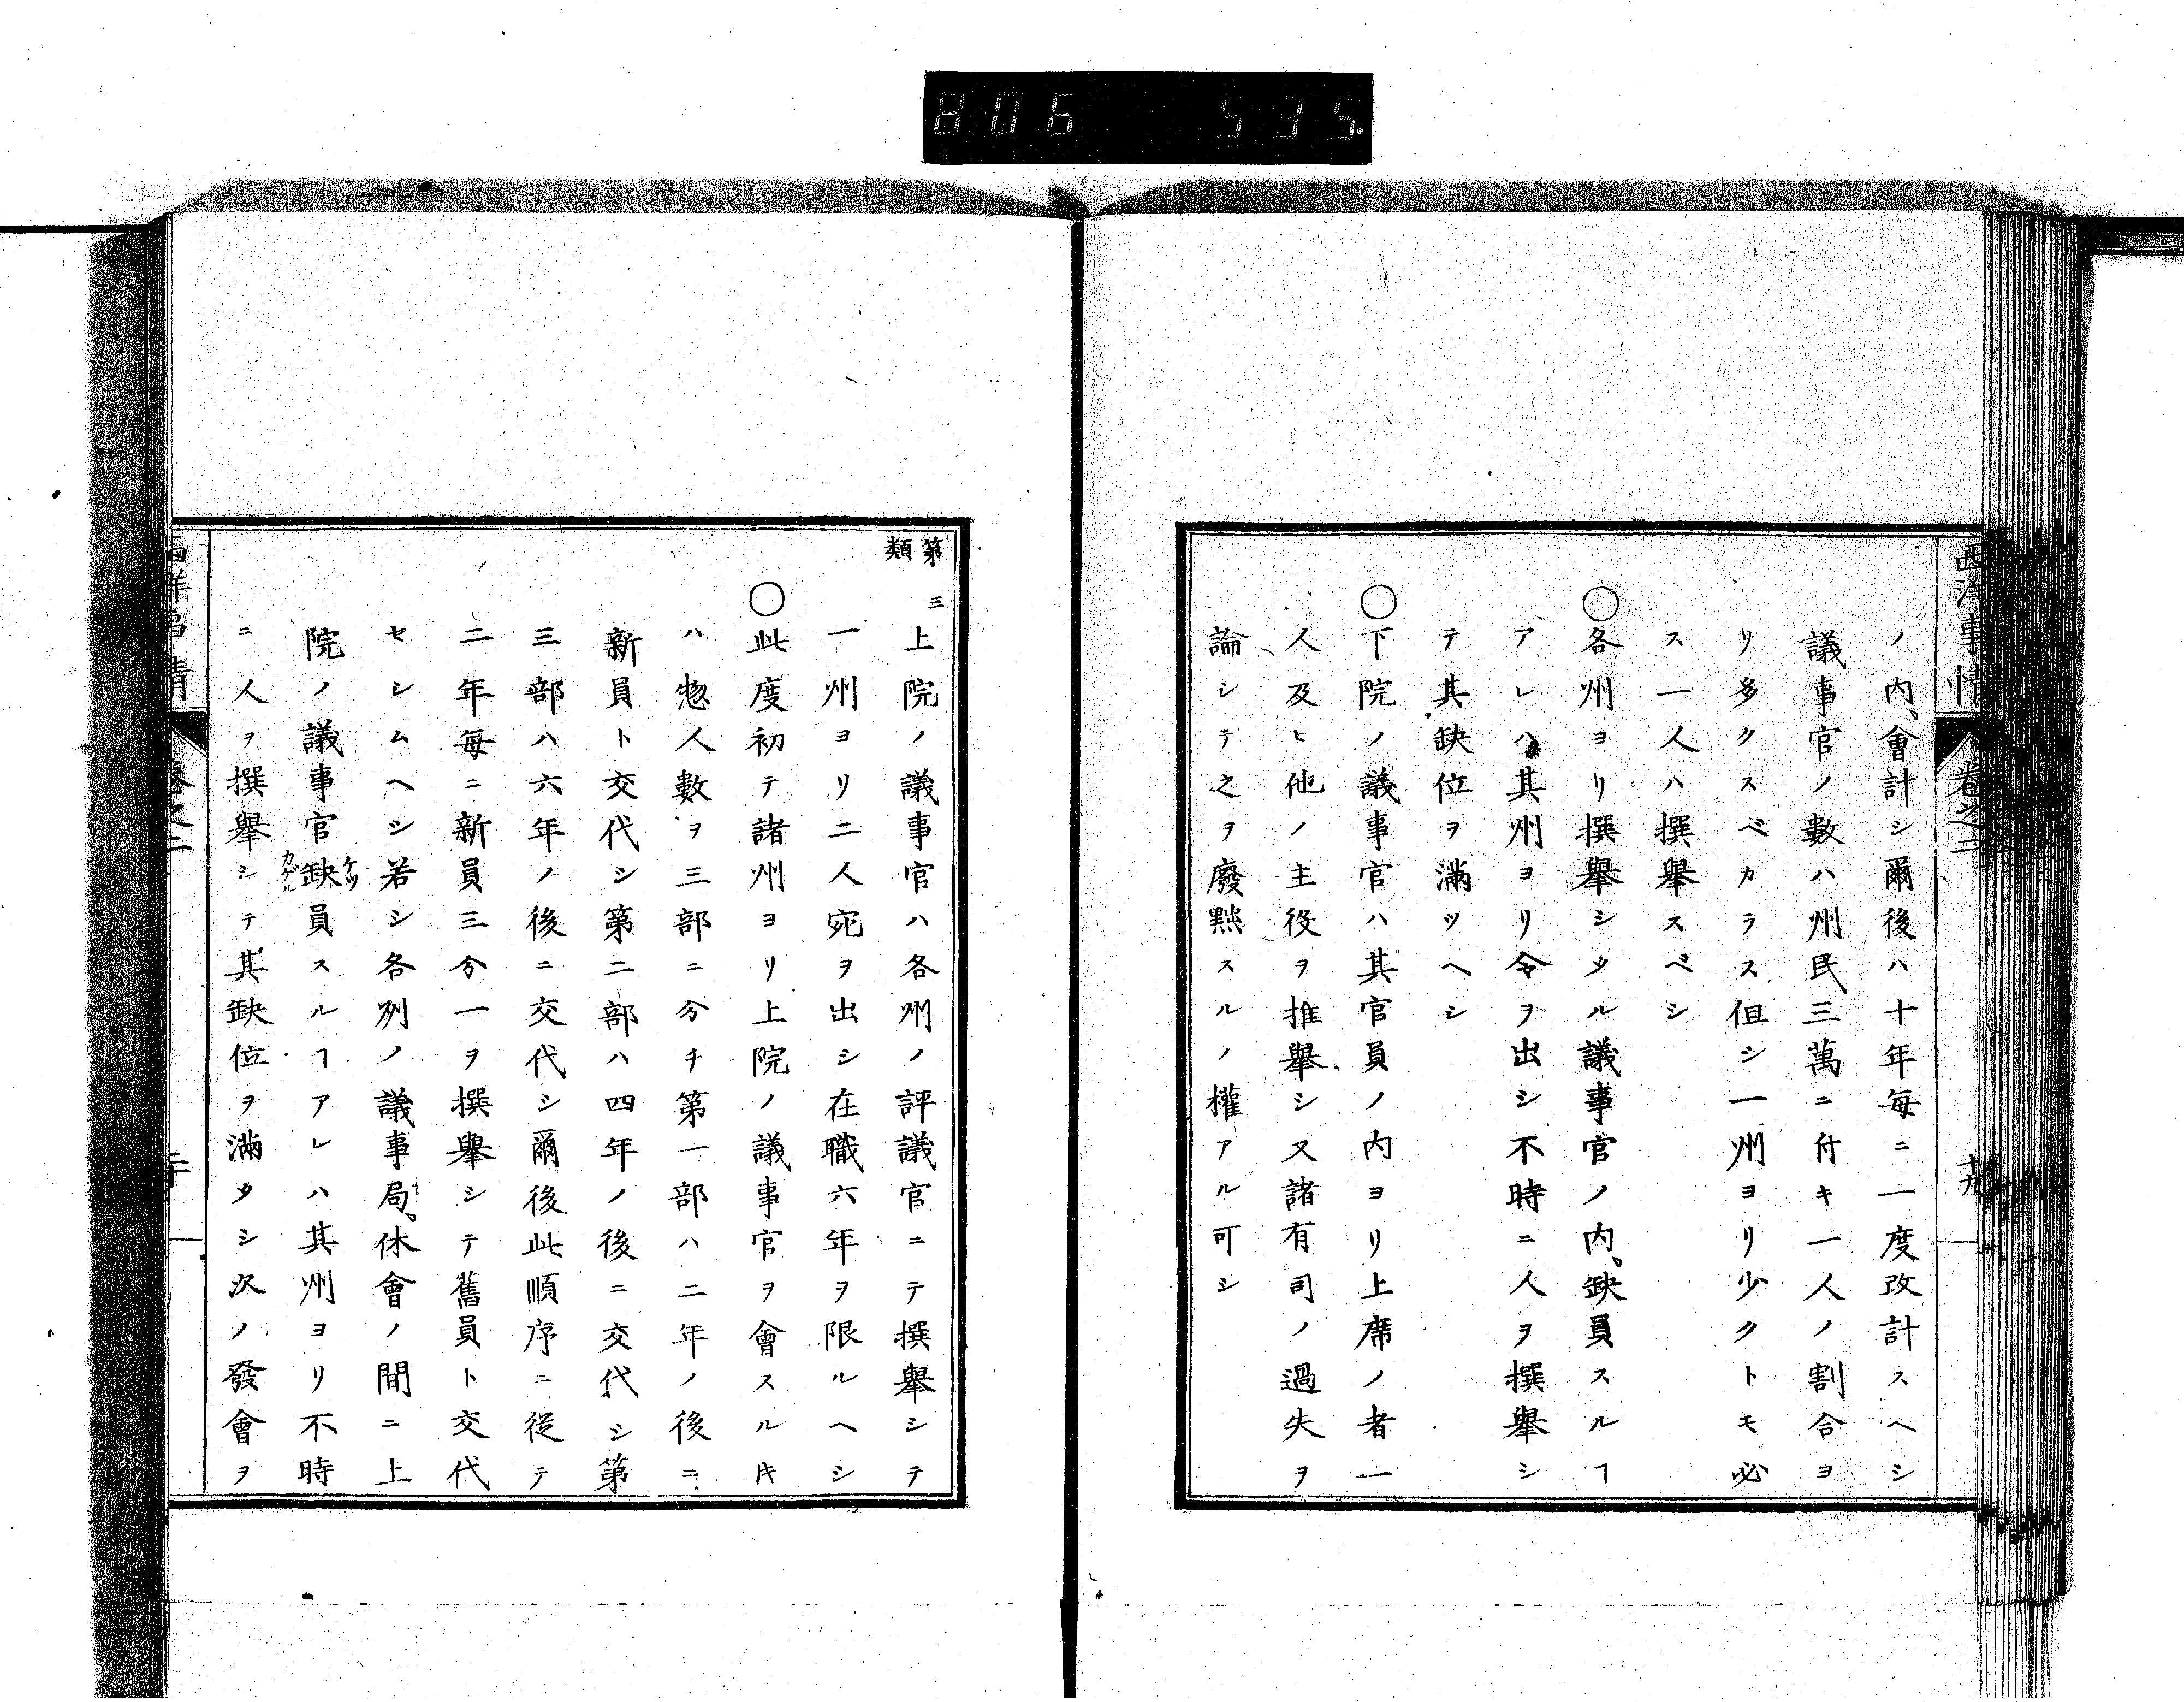 806 535.
西洋事情 卷之二 十九
ノ内、會計シ爾後ハ十年每ニ一度改計スヘシ
議事官ノ數ハ州民三萬ニ付キ一人ノ割合ヨ
リ多クスベカラス但シ一州ヨリ少クトモ必
ス一人ハ撰擧スベシ
〇各州ヨリ撰擧シタル議事官ノ内、缺員スルヿ
アレハ其州ヨリ令ヲ出シ不時ニ人ヲ撰擧シ
テ其缺位ヲ滿ツヘシ
〇下院ノ議事官ハ其官員ノ内ヨリ上席ノ者一
人及ヒ他ノ主役ヲ推擧シ又諸有司ノ過失ヲ
論シテ之ヲ廢黙スルノ權アル可シ
第三類
上院ノ議事官ハ各州ノ評議官ニテ撰擧シテ
一州ヨリ二人宛ヲ出シ在職六年ヲ限ルヘシ
〇此度初テ諸州ヨリ上院ノ議事官ヲ會スルトキ
ハ惣人數ヲ三部ニ分チ第一部ハ二年ノ後ニ
新員ト交代シ第二部ハ四年ノ後ニ交代シ第
三部ハ六年ノ後ニ交代シ爾後此順序ニ從テ
二年每ニ新員三分一ヲ撰擧シテ舊員ト交代
セシムヘシ若シ各州ノ議事局、休會ノ間ニ上
院ノ議事官缺員スルヿアレハ其州ヨリ不時
ケツ
カゲル
ニ人ヲ撰擧シテ其缺位ヲ滿タシ次ノ發會ヲ